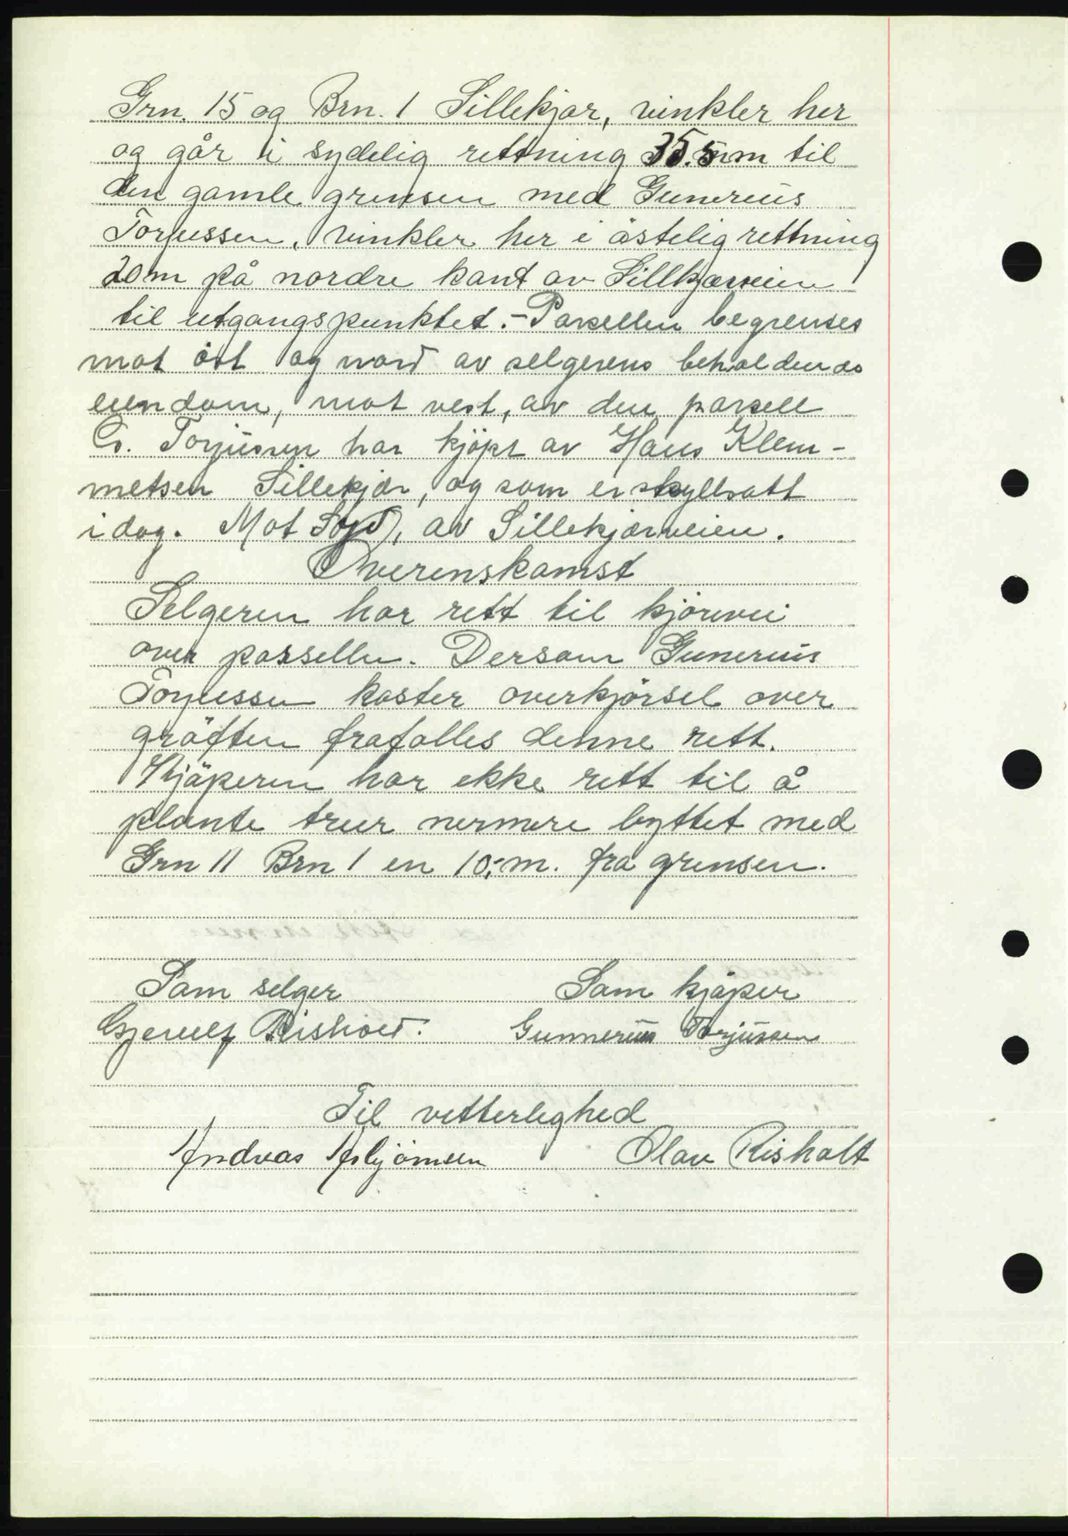 Grn. 15 og Brn. 1 Sillekjær, vinkler her
og går i sydelig rettning 35.5 m til
den gamle grensen med Gunerius
Torjussen, vinkler her i östelig rettning
20 m på nordre kant av Sillkjærveien
til utgangspunktet. - Parsellen begrenses
mot öst og nord av selgerens beholdende
eiendom, mot vest, av den parsell
G. Torjusen har kjöpt av Hans Klem-
metsen Sillekjær, og som er skyllsatt
i dag. Mot Syd, av Sillekjærveien.
Overenskomst
Selgeren har rett til kjörevei
over parsellen. Dersom Gunerius
Torjussen koster overkjörsel over
gröften frafalles denne rett.
Kjöperen har ikke rett til å
plante trær nermere byttet med
Grn 11 Brn 1 en 10,- m. fra grensen.
Som selger Som kjöper
Risholt. Gunnerius Torjussen
Til vitterlighed
Andreas Asbjörnsen Olav Risholt